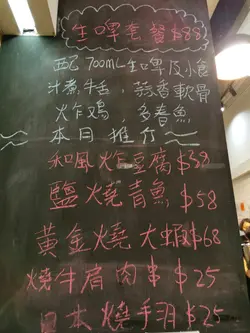 生啤套餐$88
配700mL生啤及小食
汁煮牛舌，蒜香軟骨
火乍鸡，多春魚
本日推介
和風炸豆腐$39
鹽燒青魚$58
黃金燒大蝦$68
燒牛肩肉串$25
日本燒手羽$25